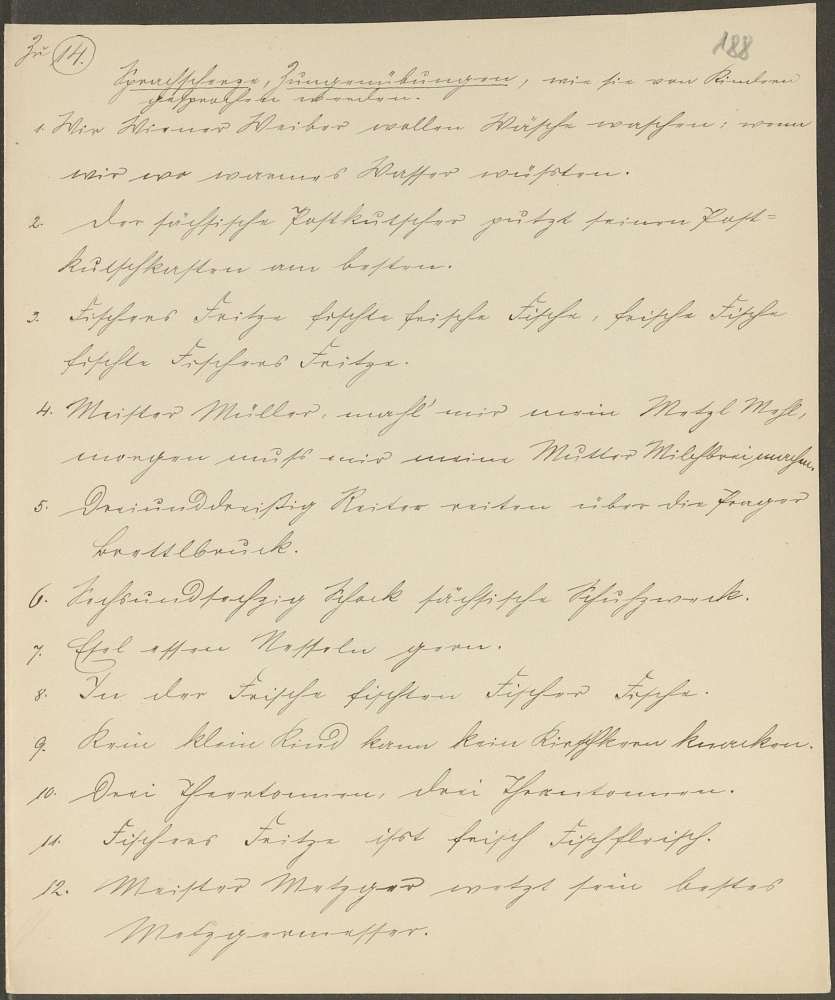 Zu 14.
188
Sprachscherze, Zungenübungen, wie sie von Kindern
gesprochen werden.
1. Wir Wiener Weiber wollen Wäsche waschen; wenn
wir wo warmes Wasser wüßten.
2. Der sächsische Postkutscher putzt seinen Post=
kutschkasten am besten.
3. Fischers Fritze fischte frische Fische, frische Fische
fischte Fischers Fritze.
4. Meister Müller, mahl' mir mein Metzl Mehl,
morgen muß mir meine Mutter Milchbrei machen.
5. Dreiunddreißig Reiter reiten über die Prager
Brettlbruck.
6. Sechsundsechzig Schock sächsische Schuhzweck.
7. Esel essen Nesseln gern.
8. In der Frische fischten Fischer Fische.
9. Kein klein Kind kann kein Kirschkern knacken.
10. Drei Theertonnen, drei Thrantonnen.
11. Fischers Fritze ißt frisch Fischfleisch.
12. Meister Metzger wetzt sein bestes
Metzgermesser.